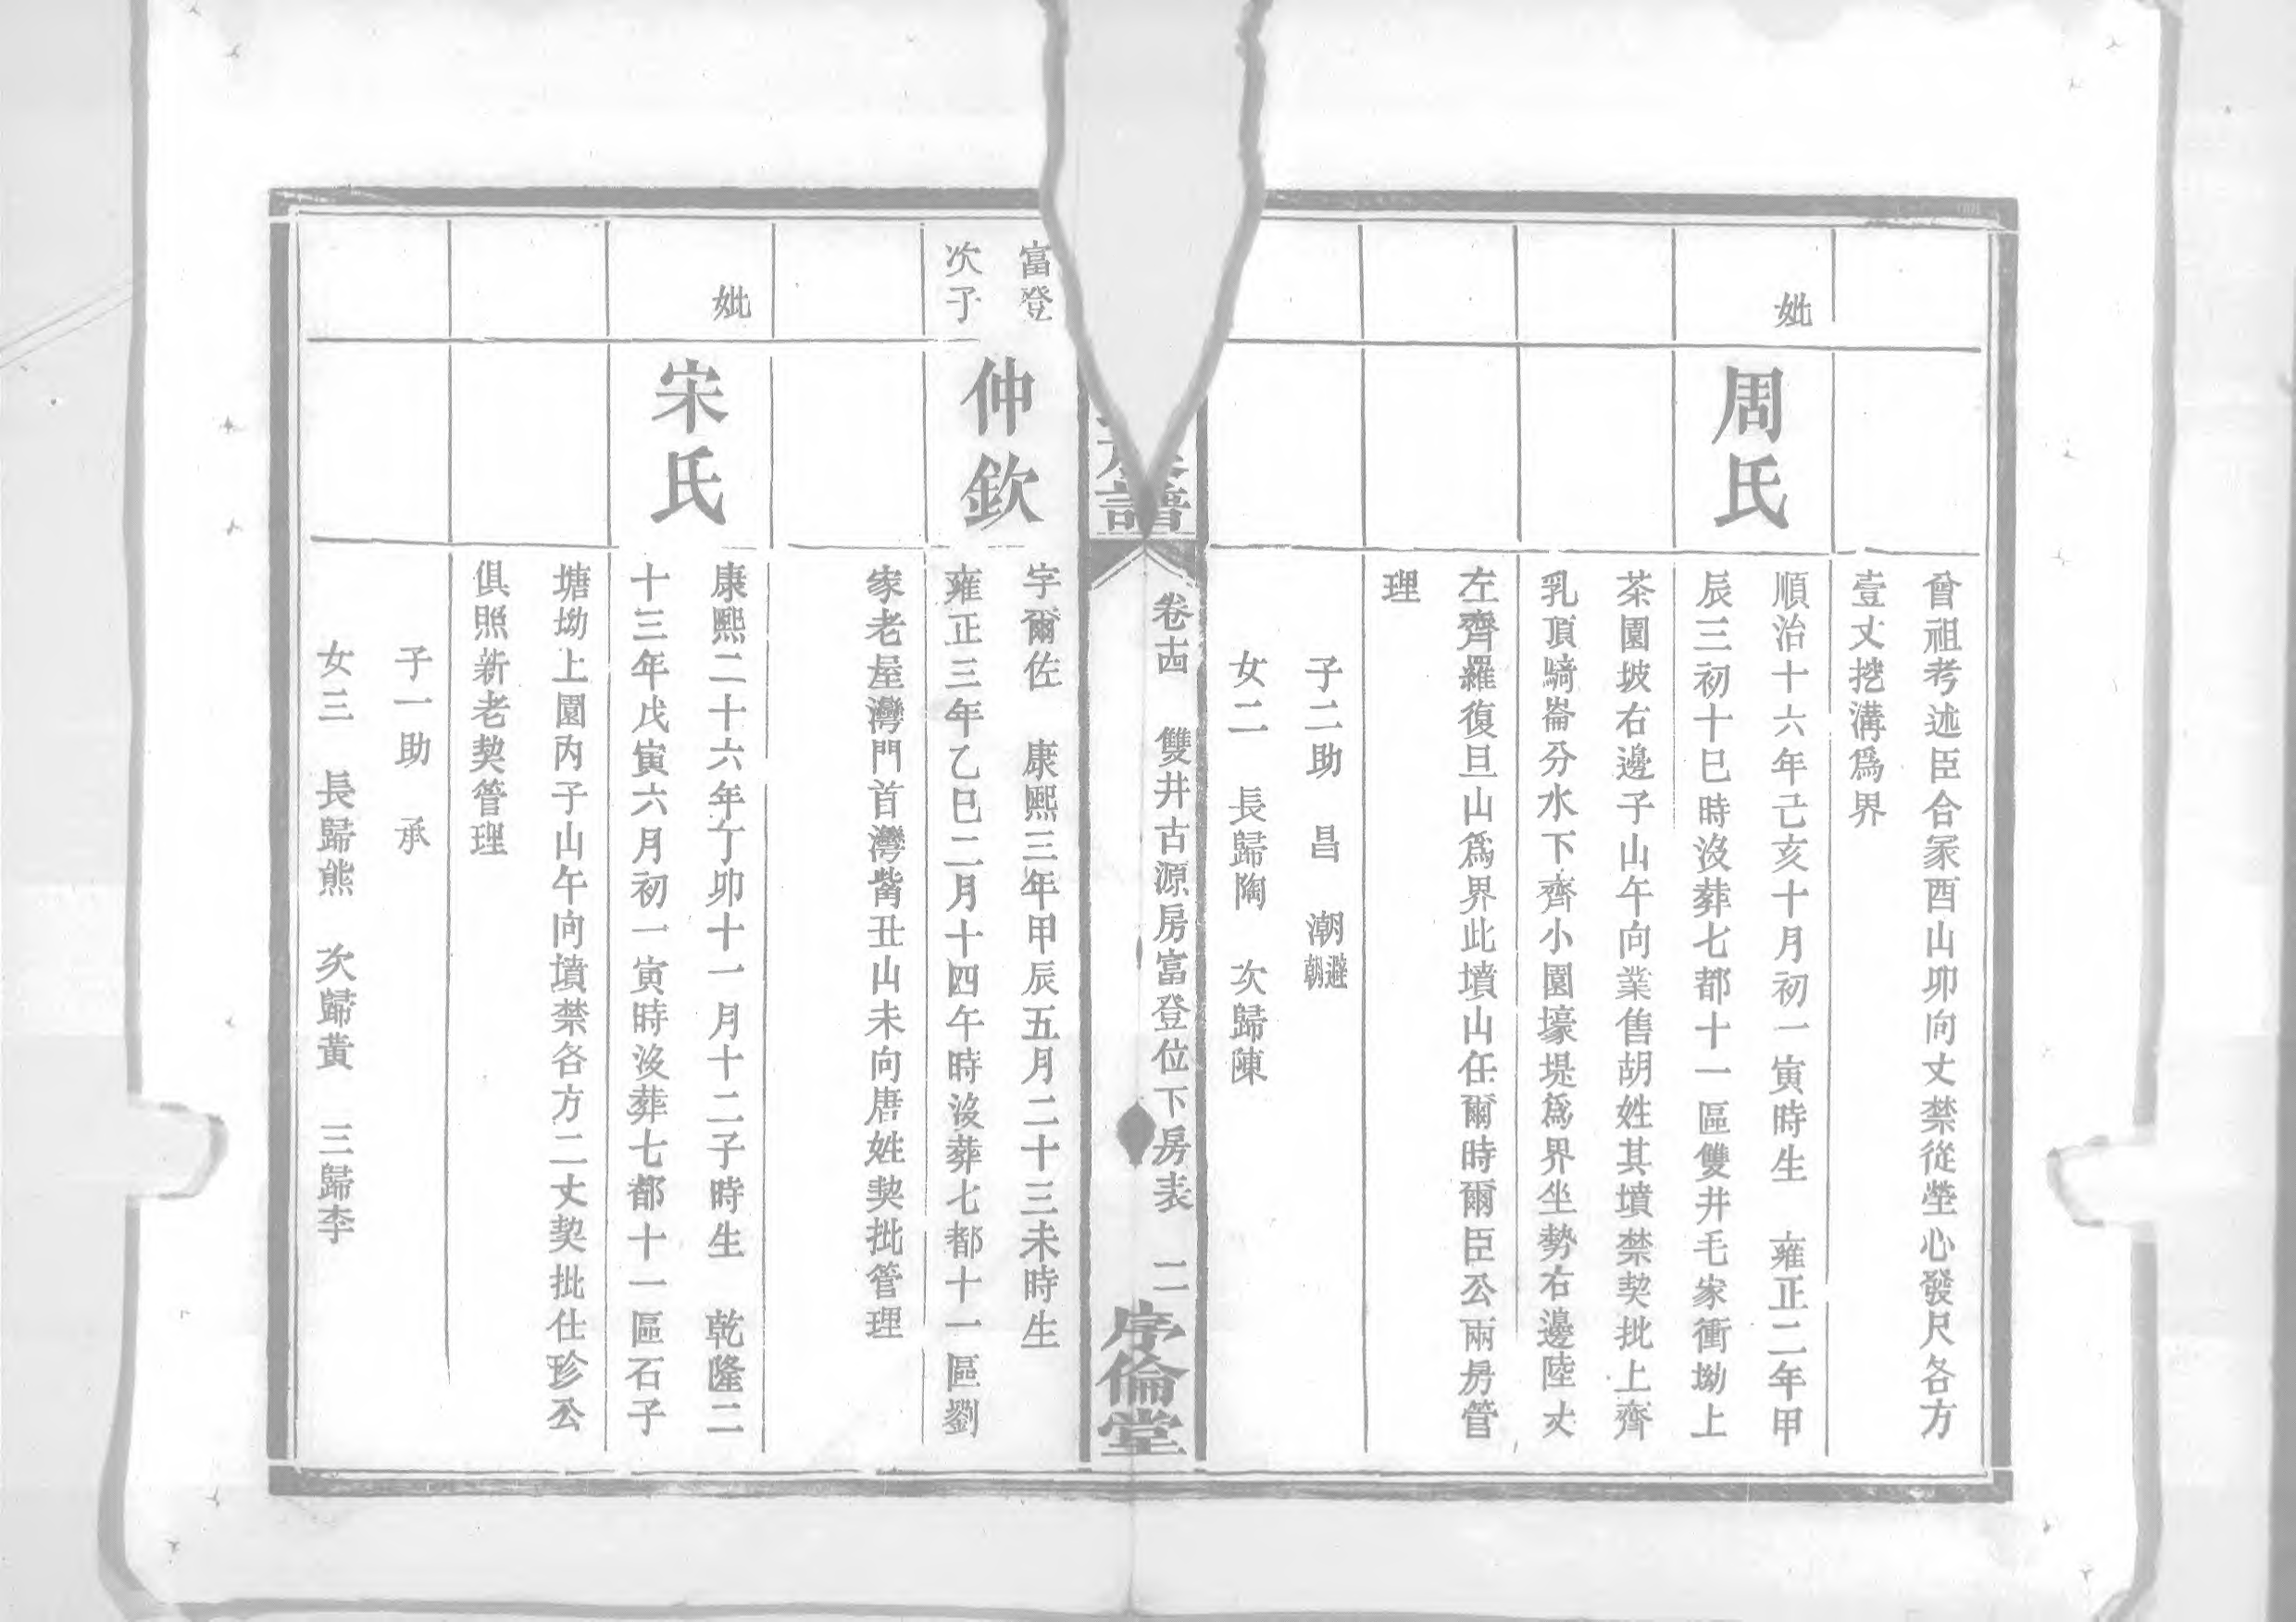 曾祖考述臣合冢酉山卯向丈禁從塋心發尺各方
壹丈挖溝爲界
妣
周氏
順治十六年己亥十月初一寅時生　雍正二年甲
辰三初十巳時沒葬七都十一區雙井毛家衝坳上
茶園坡右邊子山午向業售胡姓其墳禁契批上齊
乳頂騎崙分水下齊小園壕堤爲界坐勢右邊陸丈
左齊羅復旦山爲界此墳山任爾時爾臣公兩房管
理
子二助　昌　潮避朝
女二　長歸陶　次歸陳
族譜
卷十四　雙井古源房富登位下房表　二
序倫堂
富登
次子
仲欽
字爾佐　康熙三年甲辰五月二十三未時生
雍正三年乙巳二月十四午時沒葬七都十一區劉
家老屋灣門首灣嘴丑山未向唐姓契批管理
妣
宋氏
康熙二十六年丁卯十一月十二子時生　乾隆二
十三年戊寅六月初一寅時沒葬七都十一區石子
塘坳上園內子山午向墳禁各方二丈契批仕珍公
俱照新老契管理
子一助　承
女三　長歸熊　次歸黃　三歸李